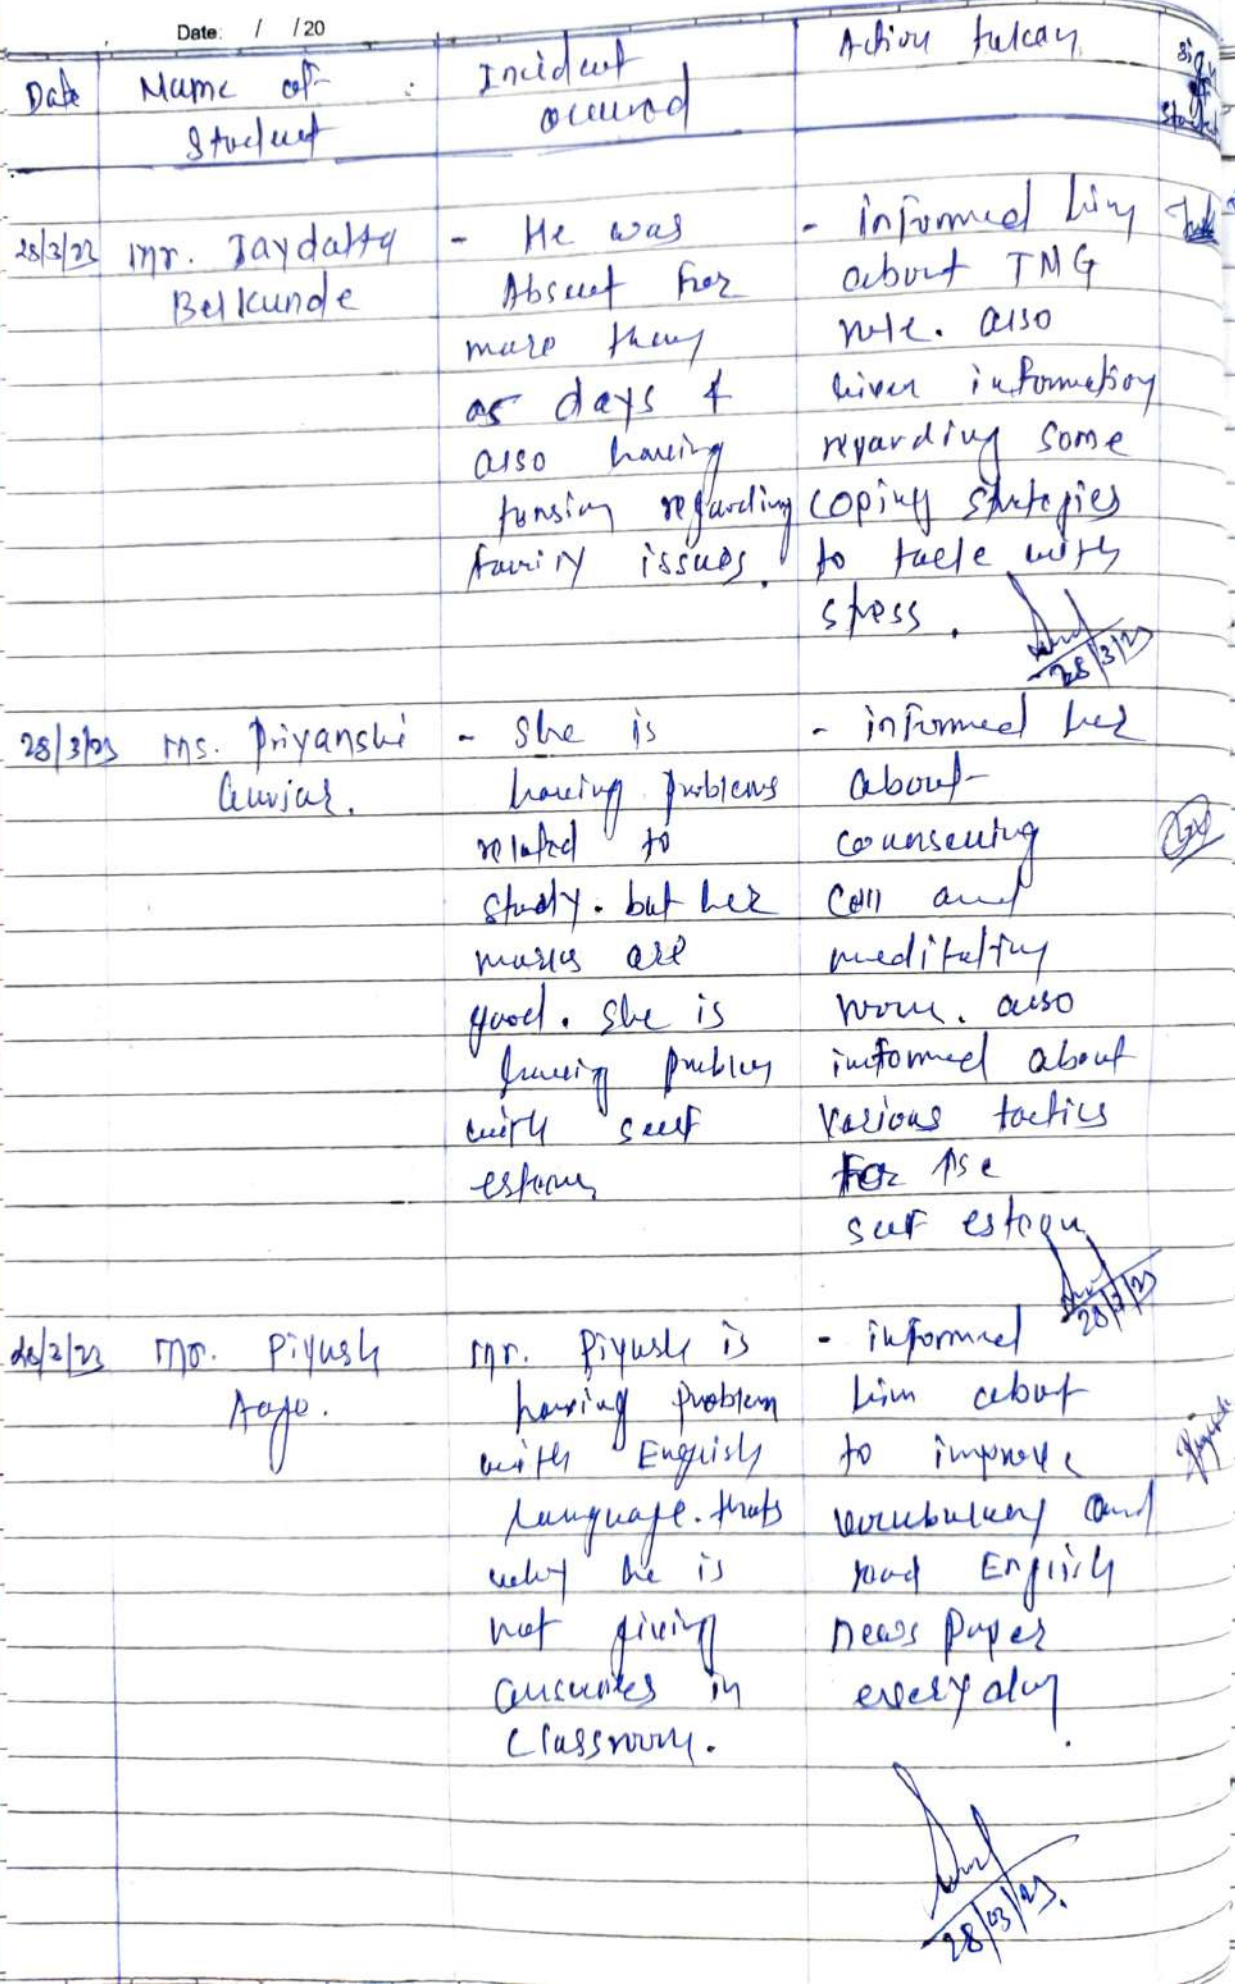 Date: / /20
Date Name of Student Incident occured Action taken Sign of Student
28/3/23 Mr. Jaydatta Belkunde
- He was
Absent For
more than
05 days &
also having
tension regarding
family issues.
- informed him
about TMG
role. also
Given information
regarding some
coping strategies
to tacle with
stress.
28/3/23
28/3/23 Ms. Priyanshi
- She is
having problems
related to
study. but her
marks are
good. She is
having problem
with self
esteem
- informed her
about
counselling
cell and
meditation
room. also
informed about
various tactics
For rise
self esteem
28/3/23
28/3/23 Mr. Piyush
Mr. Piyush is
having problem
with English
language. thats
why he is
not giving
answers in
classroom.
- informed
him about
to improve
vocubulary and
read English
news paper
everyday.
Piyush
28/03/23.